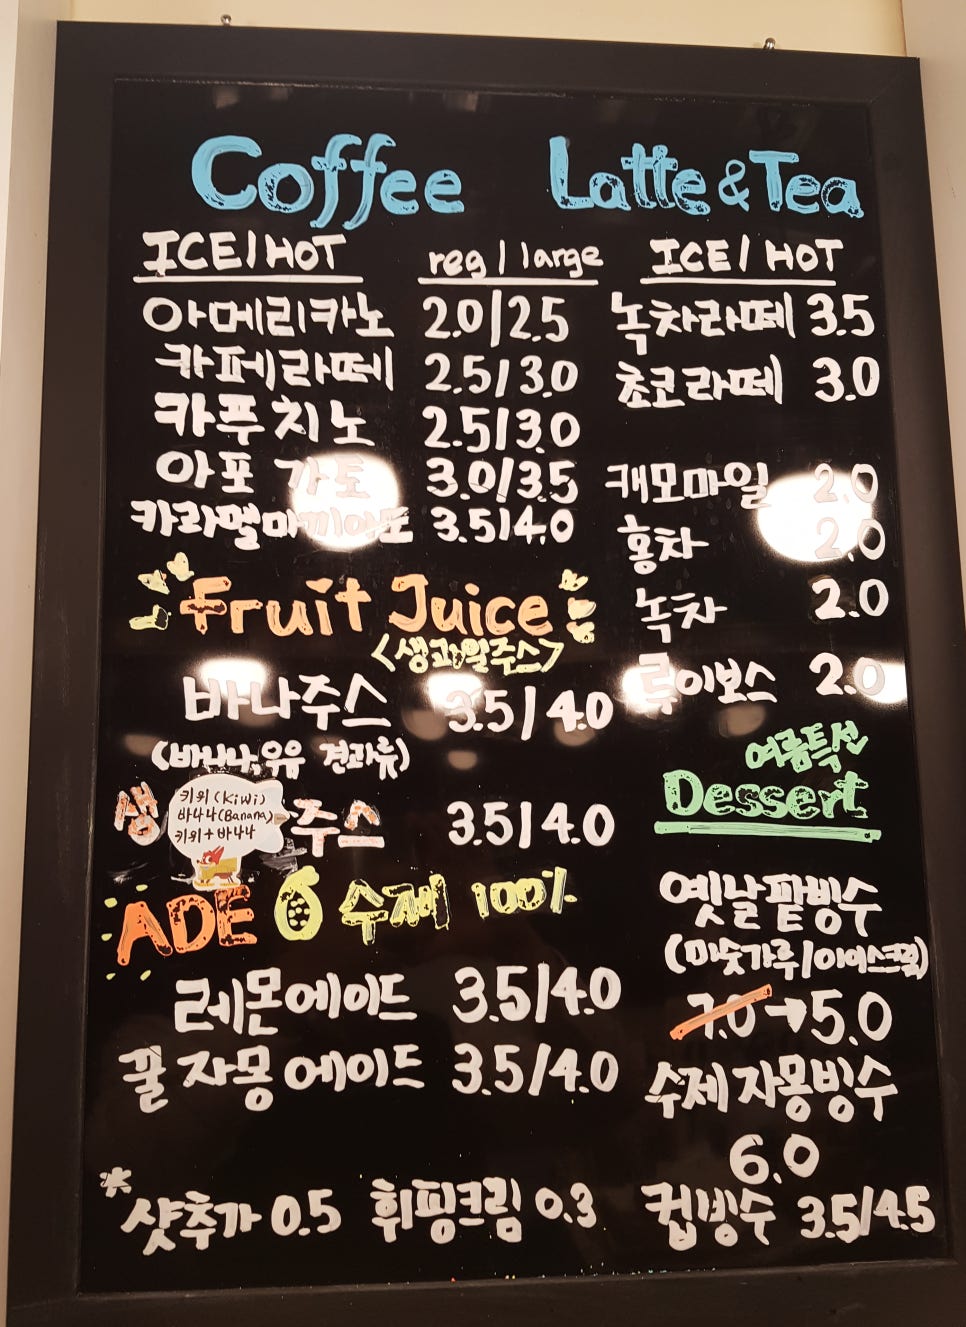 Coffee
ICE/HOT reg/large
아메리카노 2.0/2.5
카페라떼 2.5/3.0
카푸치노 2.5/3.0
아포가토 3.0/3.5
카라멜마끼아또 3.5/4.0
Fruit Juice
<생과일주스>
바나주스 3.5/4.0
(바나나,우유 견과류)
생 주스 3.5/4.0
키위(Kiwi)
바나나(Banana)
키위+바나나
ADE 수제 100%
레몬에이드 3.5/4.0
꿀자몽에이드 3.5/4.0
*샷추가 0.5 휘핑크림 0.3
Latte & Tea
ICE/HOT
녹차라떼 3.5
초코라떼 3.0
캐모마일 2.0
홍차 2.0
녹차 2.0
루이보스 2.0
여름특선
Dessert
옛날팥빙수
(미숫가루/아이스크림)
7.0→5.0
수제자몽빙수
6.0
컵빙수 3.5/4.5